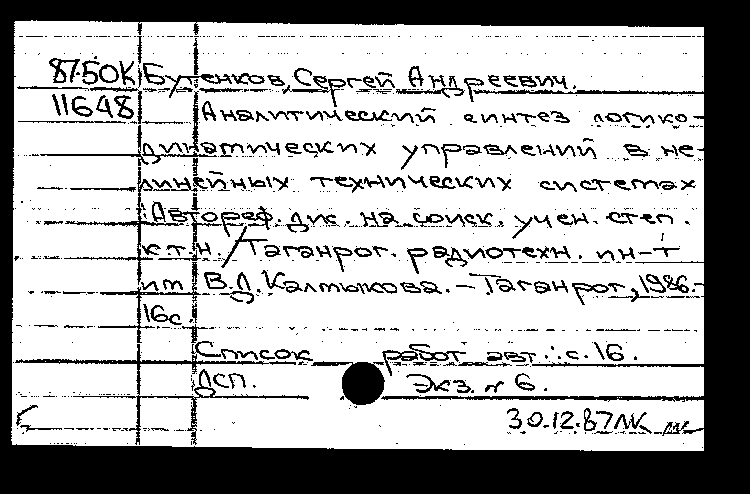 8750К Бутенков, Сергей Андреевич.
11648 Аналитический синтез логико-
динамических управлений в не-
линейных технических системах
:Автореф. дис. на соиск. учен. степ.
к.т.н. / Таганрог. радиотехн. ин-т
им В.Д. Калмыкова. – Таганрог, 1986.-
16с.
Список работ авт.: с. 16.
ДСП. Экз. № 6.
30.12.87